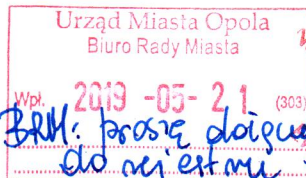 Urząd Miasta Opola
Biuro Rady Miasta
Wpł. 2019 -05- 21 (303)
BRM: proszę
do rejestru